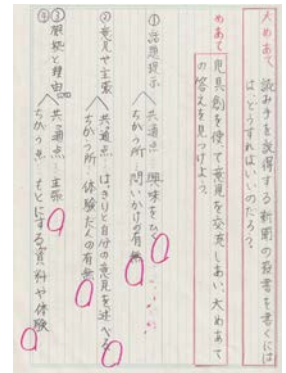 大めあて 読み手を説得する新聞の投書を書くに
は、どうすればいいのだろう?
めあて 児童創を使って意見を交流しあい、大めあて
の答えを見つけよう。
①話題提示
共通点…興味をひく
ちがう所…問いかけの有無
②意見や主張
共通点…はっきりと自分の意見を述べる
ちがう所…体験だんの有無
③根拠と理由
④
共通点…主張
ちがう点…もとにする資料や体験